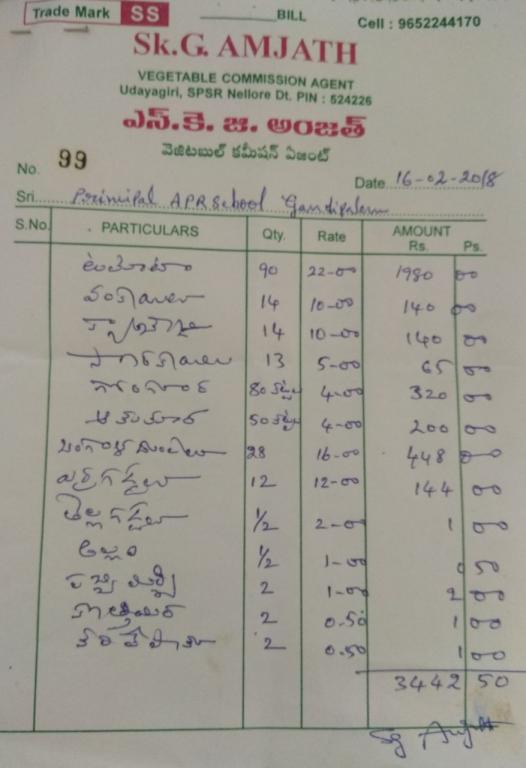 Trade Mark SS BILL Cell : 9652244170
Sk.G. AMJATH
VEGETABLE COMMISSION AGENT
Udayagiri, SPSR Nellore Dt. PIN : 524226
ఎస్.కె. జి. అంజత్
వెజిటబుల్ కమీషన్ ఏజెంట్
No. 99
Date 16-02-2018
Sri Principal APR School Gandipalem
S.No. PARTICULARS Qty. Rate AMOUNT
Rs. Ps.
టమోటా 90 22-00 1980 00
వంకాయలు 14 10-00 140 00
14 10-00 140 00
13 5-00 65 00
గోంగూర 80 కట్టలు 4-00 320 00
ఆకుకూర 50 కట్టలు 4-00 200 00
బంగాళదుంపలు 28 16-00 448 00
ఎర్రగడ్డలు 12 12-00 144 00
తెల్లగడ్డలు 1/2 2-00 1 00
అల్లం 1/2 1-00 0 50
పచ్చిమిర్చి 2 1-00 2 00
కొత్తిమీర 2 0.50 1 00
కరివేపాకు 2 0.50 1 00
3442 50